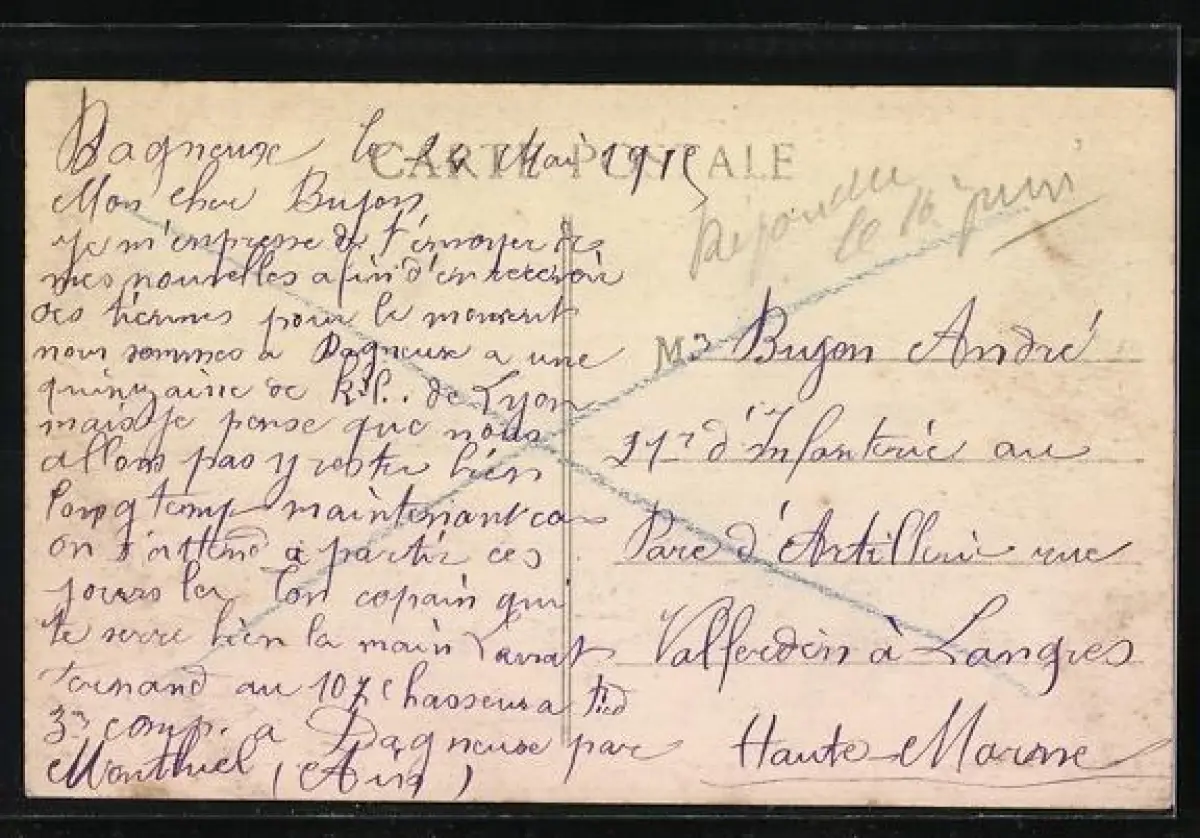 CARTE POSTALE
Dagneux le Mai 1915
Mon cher Bujon
je m'empresse de t'envoyer de
mes nouvelles afin d'en recevoir
des tiennes pour le moment
nous sommes a Dagneux a une
quinzaine de kil.. de Lyon
mais je pense que nous
allons pas y rester bien
longtemp maintenant ca
on s'attend a partir ces
jours la Ton copain qui
te serre bien la main
Fernand au 107 Chasseurs a Pied
3e comp. a Dagneux par
Montluel (Ain)
Répondu
le 16 juin
Mr Bujon André
21e d'Infanterie au
Parc d'Artillerie rue
à Langres
Haute-Marne